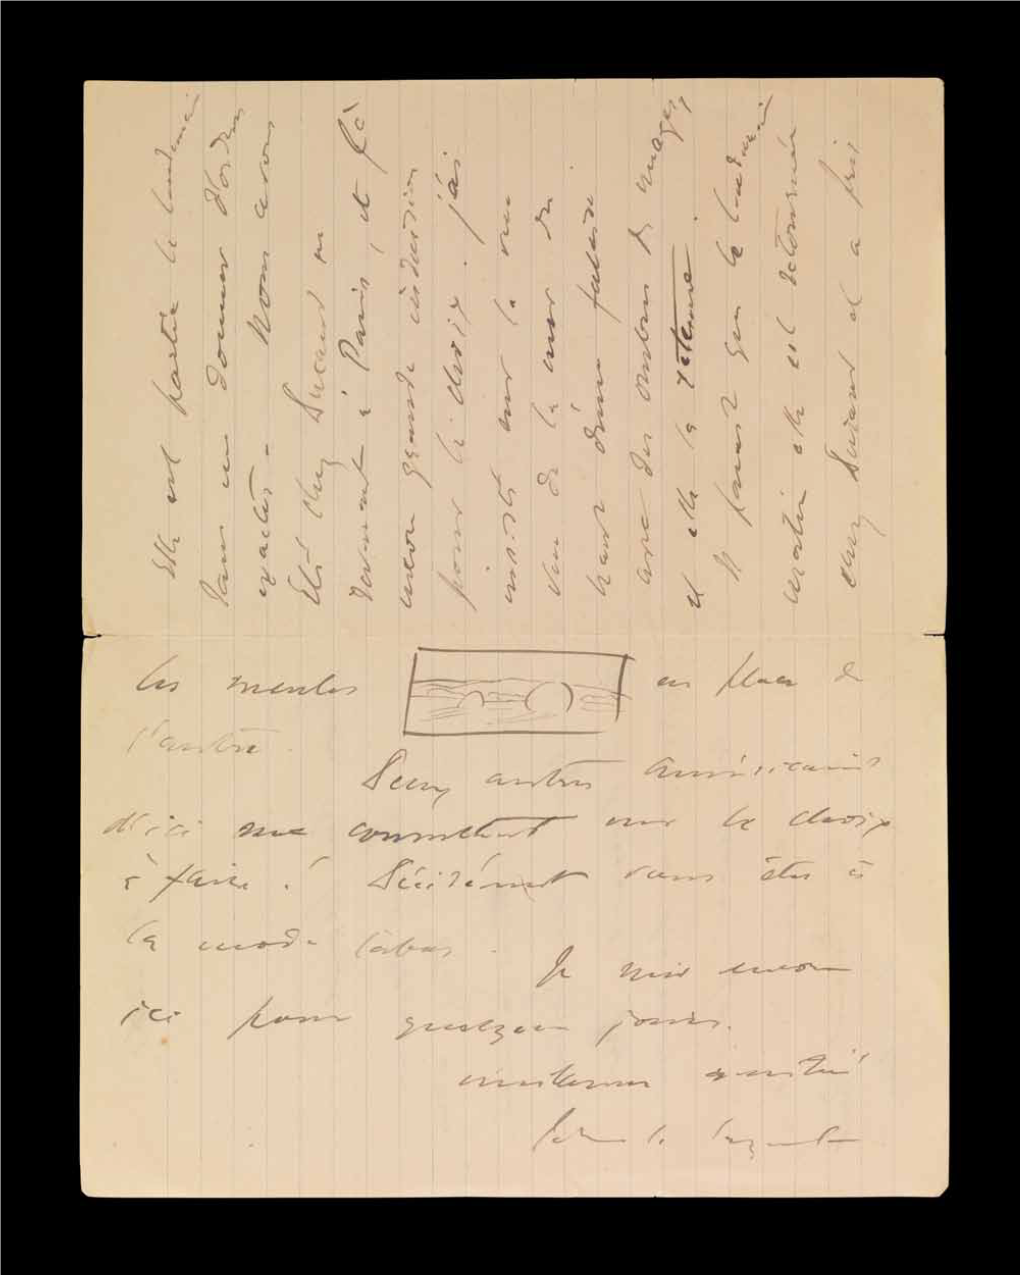 Elle est partie le lendemain
sans me donner d'ordres
exacts. Nous avons
été chez Durand en
revenant à Paris, et là
encore grande indécision
pour le choix. j'ai
insisté sur la vue
vue de la mer du
haut d'une falaise
avec des ombres de nuages
et elle l'a retenue.
Il parait que le lendemain
matin elle est retournée
chez Durand et a pris
les meules en place de
l'autre.
Deux autres américains
d'ici me consultent sur le choix
à faire ! Décidément vous êtes à
la mode labas.
Je suis encore
ici pour quelques jours.
amitié
John S. Sargent